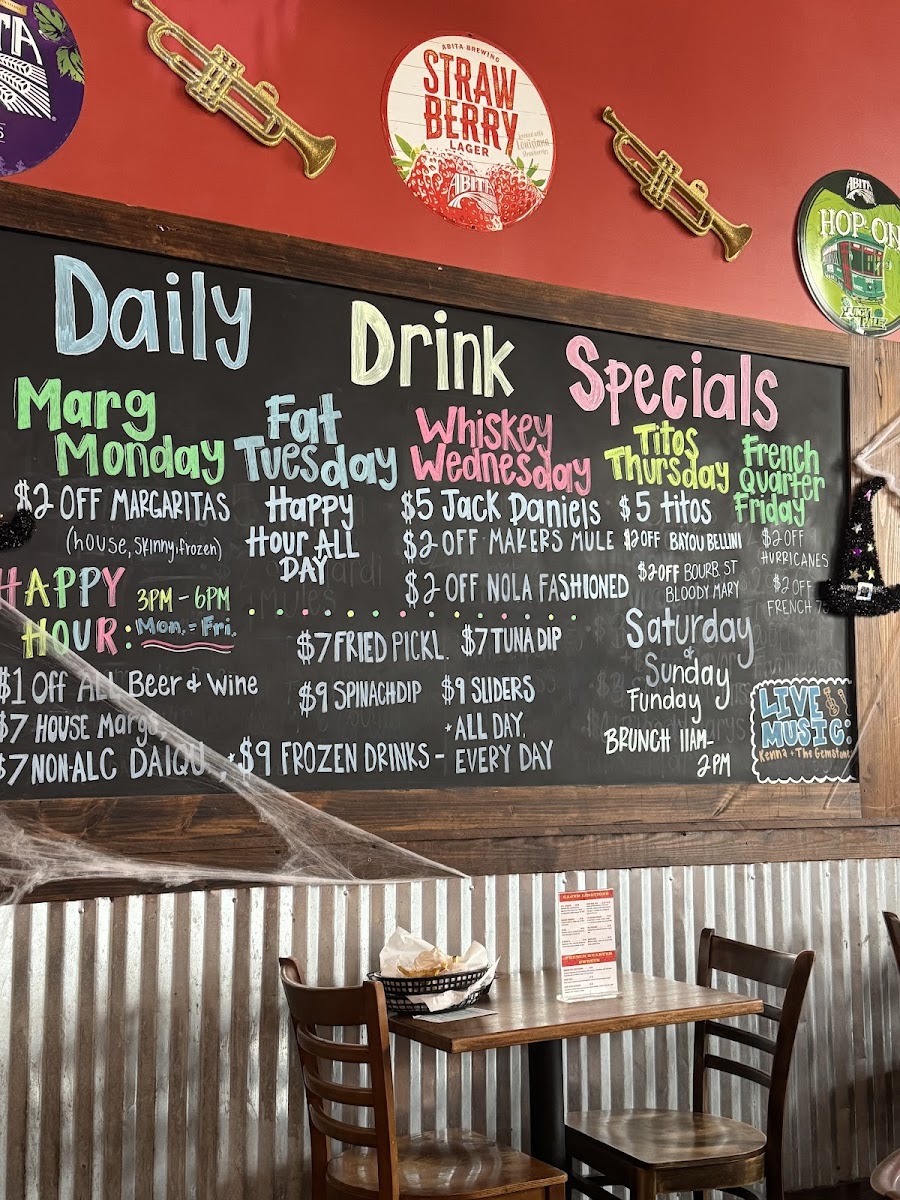 TA
ABITA BREWING
STRAW
BERRY
LAGER
Louisiana
ABITA
ABITA
HOP-ON
Daily Drink Specials
Marg
Monday
$2 OFF MARGARITAS
(house, Skinny, frozen)
Fat
Tuesday
Happy
Hour ALL
DAY
Whiskey
Wednesday
$5 Jack Daniels
$2 OFF MAKERS MULE
$2 OFF NOLA FASHIONED
Titos
Thursday
$5 titos
$2 OFF BAYOU BELLINI
$2 OFF BOURB ST
BLOODY MARY
French
Quarter
Friday
$2 OFF
HURRICANES
$2 OFF
FRENCH 75
HAPPY
HOUR:
3PM - 6PM
Mon. - Fri.
$1 Off ALL Beer & Wine
$7 HOUSE Margs,
$7 NON-ALC DAIQU
$7 FRIED PICKL. $7 TUNA DIP
$9 SPINACH DIP $9 SLIDERS
*$9 FROZEN DRINKS -
*ALL DAY,
EVERY DAY
Saturday
&
Sunday
Funday
BRUNCH 11AM-
2PM
LIVE
MUSIC:
Kenna + The Gemstones